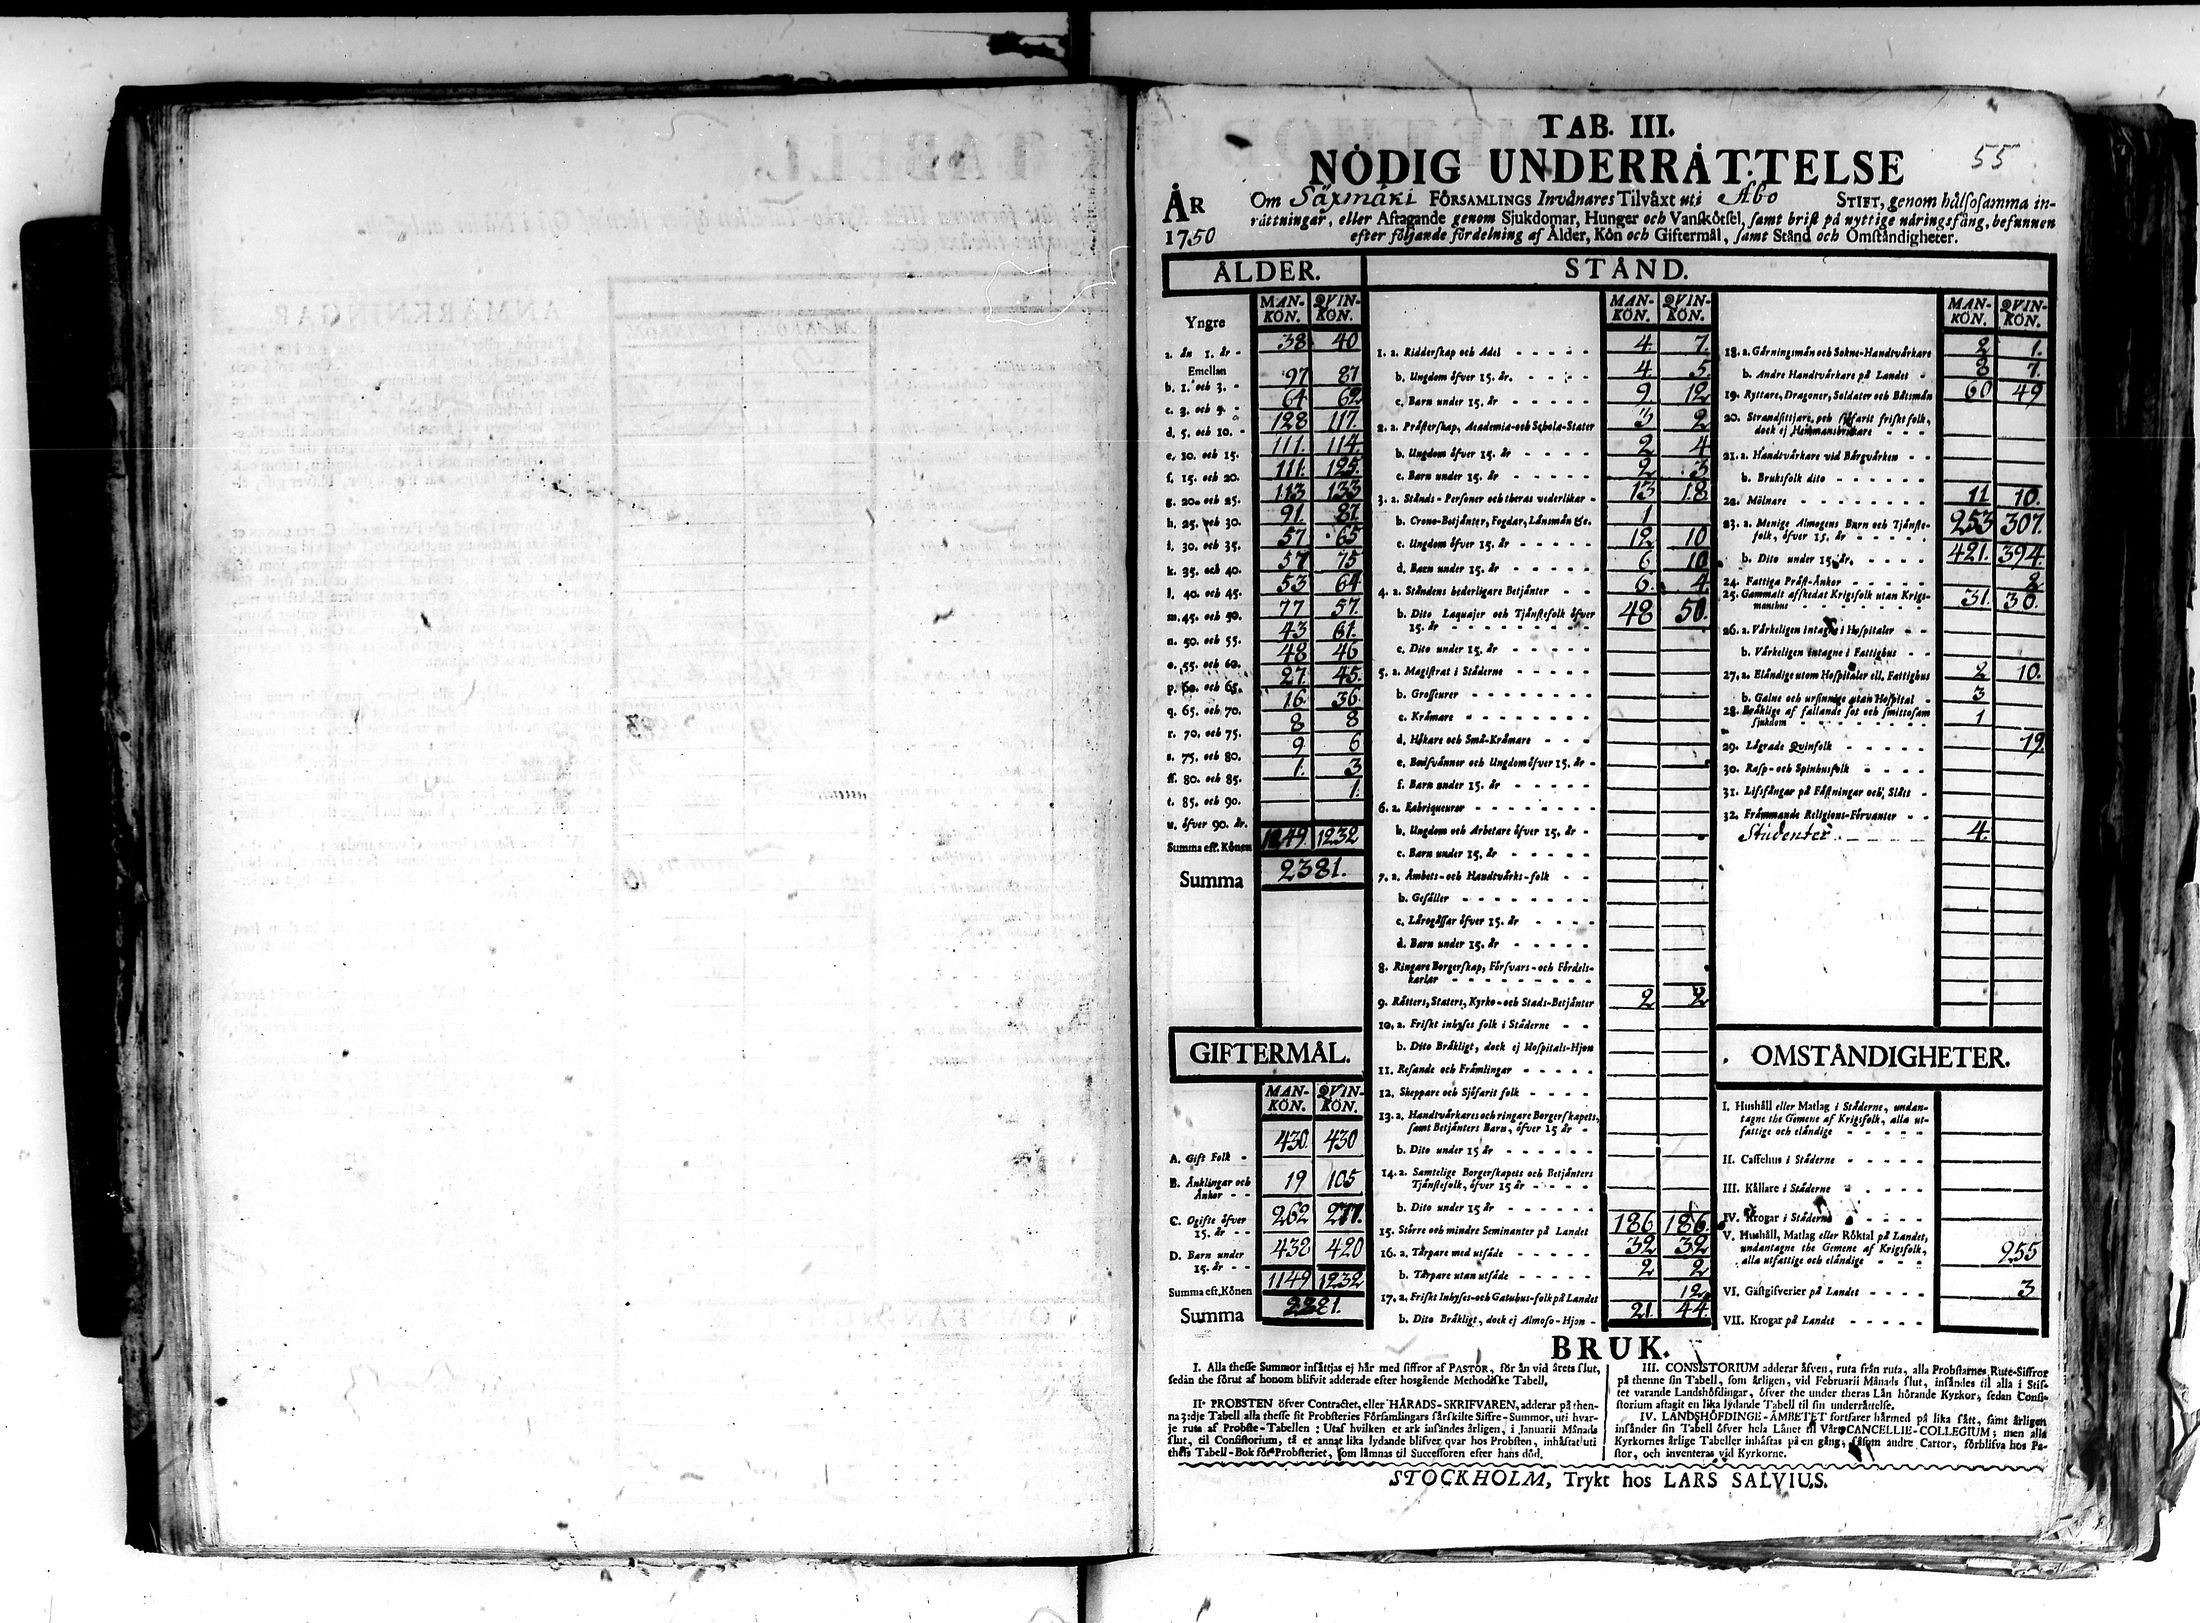 55
TAB. III.
NÖDIG UNDERRÅTTELSE
ÅR 1750
Om Säxmäki FÖRSAMLINGS Invånares Tilväxt uti Åbo STIFT, genom hälsosamma in-
råttningar, eller Aftagande genom Sjukdomar, Hunger och Vanskötsel, samt brist på nyttige näringsfång, befunnen
efter följande fördelning af Ålder, Kön och Giftermål, samt Stånd och Omståndigheter.
ÅLDER.
MAN-KÖN. QVIN-KÖN.
Yngre
a. än 1. år - 38 40
Emellan
b. 1. och 3. - 97 87
c. 3. och 5. - 64 62
d. 5. och 10. - 128 117.
e. 10. och 15. 111. 114.
f. 15. och 20. 111. 125.
g. 20. och 25. 113 133
h. 25. och 30. 91. 87.
i. 30. och 35. 57 65
k. 35. och 40. 57 75
l. 40. och 45. 53 64
m. 45. och 50. 77 57.
n. 50. och 55. 43 61.
o. 55. och 60. 48 46
p. 60. och 65. 27. 45.
q. 65. och 70. 16 36.
r. 70. och 75. 8 8
s. 75. och 80. 9 6
ff. 80. och 85. 1. 3
t. 85. och 90. 1.
u. öfver 90. år.
Summa eft. Könen 1149. 1232
Summa 2381.
GIFTERMÅL.
MAN-KÖN. QVIN-KÖN.
A. Gift Folk - 430. 430
B. Änklingar och
Änkor - - 19 105
C. Ogifte öfver
15. år - - 262 277.
D. Barn under
15. år - - 438 420
Summa eft. Könen 1149 1232
Summa 2381.
STÅND.
MAN-KÖN. QVIN-KÖN.
1. a. Ridderskap och Adel - - - - - 4 7.
b. Ungdom öfver 15. år. - - - - 4 5.
c. Barn under 15. år - - - - - 9 12
2. a. Prästerskap, Academia- och Schola-Stater 3 2
b. Ungdom öfver 15. år - - - - 2 4
c. Barn under 15. år - - - - - 2 3
3. a. Stånds-Personer och theras vederlikar - 13 18
b. Crono-Betjänter, Fogdar, Länsmän &c. 1
c. Ungdom öfver 15. år - - - - - 12 10
d. Barn under 15. år - - - - - 6 10
4. a. Ståndens hederligare Betjänter - - 6. 4
b. Dito Laquajer och Tjänstefolk öfver
15. år - - - - - - - - - 48 50.
c. Dito under 15. år - - - - -
5. a. Magistrat i Städerne - - - - -
b. Grosseurer - - - - - - -
c. Krämare - - - - - - -
d. Hökare och Små-Krämare - - -
e. Bodsvänner och Ungdom öfver 15. år -
f. Barn under 15. år - - - - -
6. a. Fabriqueurer - - - - - - -
b. Ungdom och Arbetare öfver 15. år -
c. Barn under 15. år - - - - -
7. a. Åmbets- och Handtvårks-folk - -
b. Gesäller - - - - - - -
c. Lärogåssar öfver 15. år - - - -
d. Barn under 15. år - - - - -
8. Ringare Borgerskap, Försvars- och Fördels-
karlar - - - - - - - - -
9. Råtters, Staters, Kyrko- och Stads-Betjänter 2 2
10. a. Friskt inhyses folk i Städerne - -
b. Dito Bräkligt, dock ej Hospitals-Hjon
11. Resande och Främlingar - - - - -
12. Skeppare och Sjöfarit folk - - - -
13. a. Handtvårkares och ringare Borgerskapets,
samt Betjänters Barn, öfver 15 år -
b. Dito under 15 år - - - - -
14. a. Samtelige Borgerskapets och Betjänters
Tjänstefolk, öfver 15 år - - - -
b. Dito under 15 år - - - - -
15. Större och mindre Seminanter på Landet 186 186.
16. a. Tårpare med utsäde - - - - 32 32
b. Tårpare utan utsäde - - - - - 2 2
17. a. Friskt Inhyses- och Gatuhus-folk på Landet 12.
b. Dito Bräkligt, dock ej Almoso-Hjon - 21. 44.
MAN-KÖN. QVIN-KÖN.
18. a. Gärningsmän och Sokne-Handtvårkare 2 1.
b. Andre Handtvårkare på Landet - 8 7.
19. Ryttare, Dragoner, Soldater och Båtsmän 60 49
20. Strandsittjare och sjöfarit friskt folk,
dock ej Hemmansbrukare - - -
21. a. Handtvårkare vid Bärgvärken - -
b. Bruksfolk dito - - - - - -
22. Mölnare - - - - - - - 11 10.
23. a. Menige Almogens Barn och Tjänste-
folk, öfver 15. år - - - - - - 253 307.
b. Dito under 15. år. - - - - 421. 394.
24. Fattiga Präst-Änkor - - - - - 2
25. Gammalt afskedat Krigsfolk utan Krigs-
manshus - - - - - - - - 31. 30.
26. a. Värkeligen intagne i Hospitaler - -
b. Värkeligen intagne i Fattighus - -
27. a. Eländige utom Hospitaler ell. Fattighus 2 10.
b. Galne och ursinnige utan Hospital - 3
28. Bräklige af fallande sot och smittosam
sjukdom - - - - - - - - 1
29. Lägrade Qvinfolk - - - - - 19
30. Rasp- och Spinhusfolk - - - - -
31. Lifsfångar på Fästningar och Slått -
32. Främmande Religions-Förvanter - -
Studenter 4.
OMSTÅNDIGHETER.
I. Hushåll eller Matlag i Städerne, undan-
tagne the Gemene af Krigsfolk, alla ut-
fattige och eländige - - - - -
II. Caffehus i Städerne - - - - -
III. Källare i Städerne - - - - -
IV. Krogar i Städerne - - - - -
V. Hushåll, Matlag eller Röktal på Landet,
undantagne the Gemene af Krigsfolk,
alla utfattige och eländige - - - 255
VI. Gästgifverier på Landet - - - - 3
VII. Krogar på Landet - - - - -
BRUK.
I. Alla thesse Summor insättjas ej här med siffror af PASTOR, för än vid årets slut,
sedan the förut af honom blifvit adderade efter hosgående Methodiske Tabell.
II. PROBSTEN öfver Contractet, eller HÄRADS-SKRIFVAREN, adderar på then-
na 3:dje Tabell alla thesse sit Probsteries Församlingars särskilte Siffre-Summor, uti hvar-
je ruta af Probste-Tabellen; Utaf hvilken et ark insändes årligen, i Januarii Månads
slut, til Consistorium, tå et annat lika lydande blifver qvar hos Probsten, inhäftat uti
thess Tabell-Bok för Probsteriet, som lämnas til Successoren efter hans död.
III. CONSISTORIUM adderar äfven, ruta från ruta, alla Probstarnes Rute-Siffror
på thenne sin Tabell, som årligen, vid Februarii Månads slut, insändes til alla i Stif-
tet varande Landshöfdingar, öfver the under theras Län hörande Kyrkor, sedan Consi-
storium aftagit en lika lydande Tabell til sin underrättelse.
IV. LANDSHÖFDINGE-ÄMBETET fortfarer härmed på lika sått, samt årligen
insänder sin Tabell öfver hela Länet til Vårt CANCELLIE-COLLEGIUM; men alla
Kyrkornes årlige Tabeller inhäftas på en gång, såsom andre Cartor, förblifva hos Pa-
stor, och inventeras vid Kyrkorne.
STOCKHOLM, Trykt hos LARS SALVIUS.